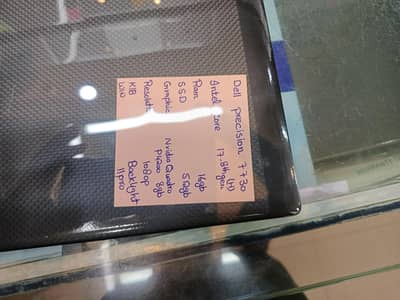 Dell precision 7730
(H)
Intel core i7.8th gen
Ram 16gb
SSD 512gb
Graphic Nvidia Quadro
P4200 8gb
Resoluti 1080p
K/B Backlight
WIN 11 pro